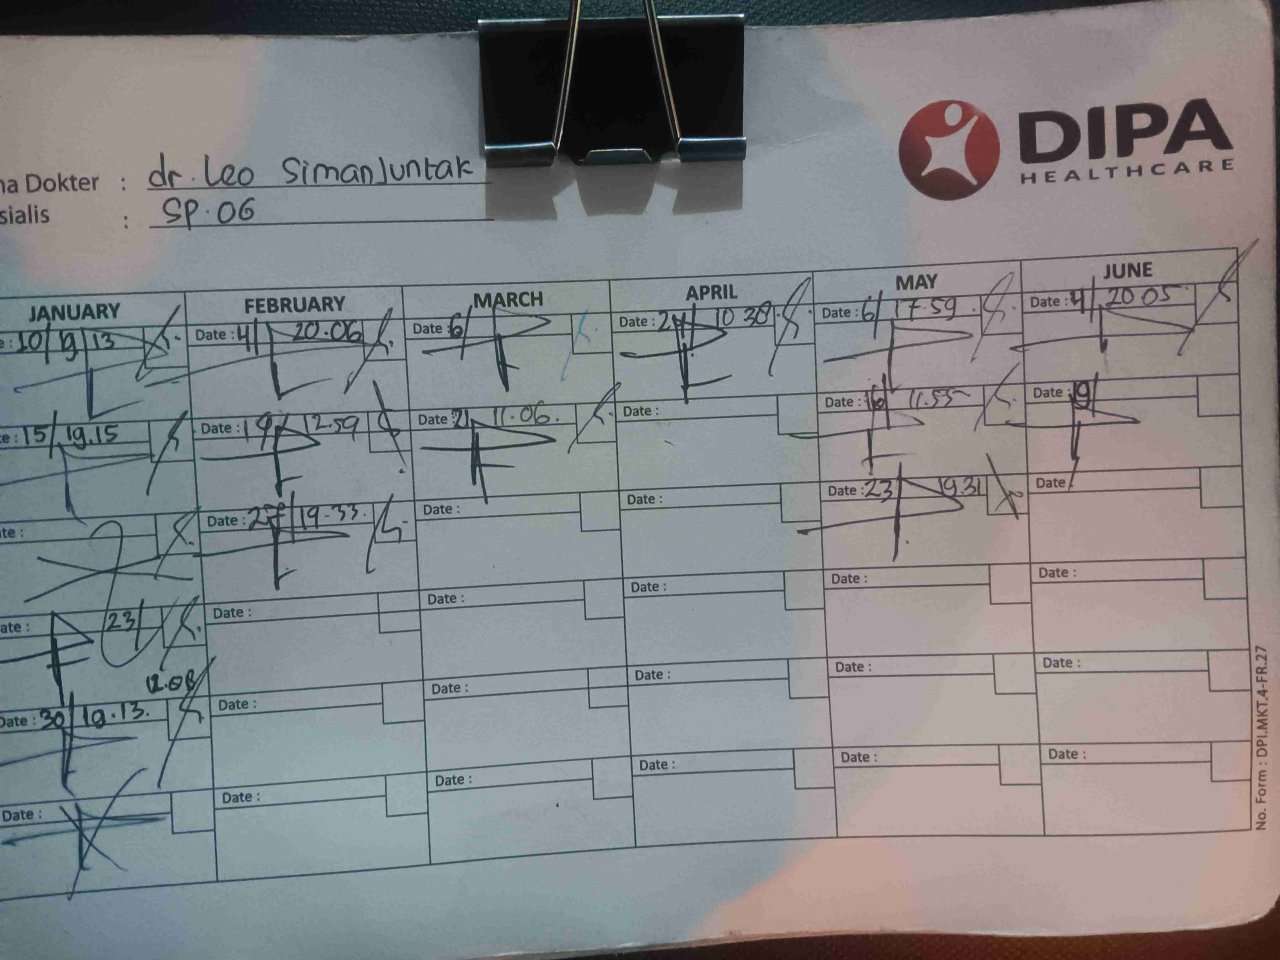 DIPA
HEALTHCARE
na Dokter : dr. Leo Simanjuntak
sialis : SP.OG
JANUARY FEBRUARY MARCH APRIL MAY JUNE
e: 10/ 19/13 Date: 4/ 20.06 Date: 6/ Date: 10 30 Date: 6/ 17.59 Date: 4/ 20 05
te: 15/ 19.15 Date: 19/ 12.59 Date: 21 11.06. Date: Date: 16/ 11.55 Date: 19/
te: Date: 27/ 19.33. Date: Date: Date: 23/ 19.31 Date
ate: 23/ Date: Date: Date: Date: Date:
12.08
Date: 30/ 19.13. Date: Date: Date: Date: Date:
Date: Date: Date: Date: Date: Date:
No. Form : DPI.MKT.4-FR.27